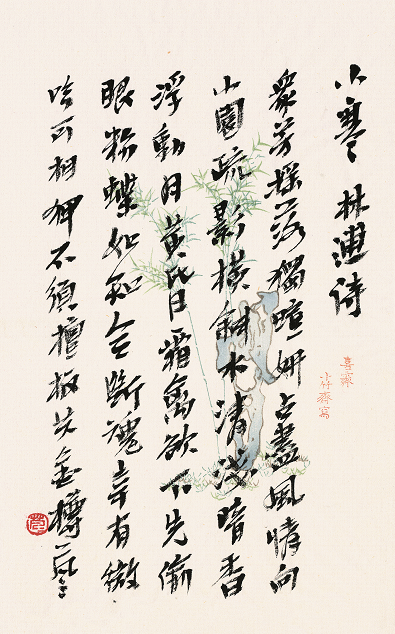 小寒 林逋诗
衆芳摇落獨喧妍占盡風情向
小園疏影横斜水清浅暗香
浮動月黄昏霜禽欲下先偷
眼粉蝶如知合斷魂幸有微
吟可相狎不須檀板共金樽
竹齋寫